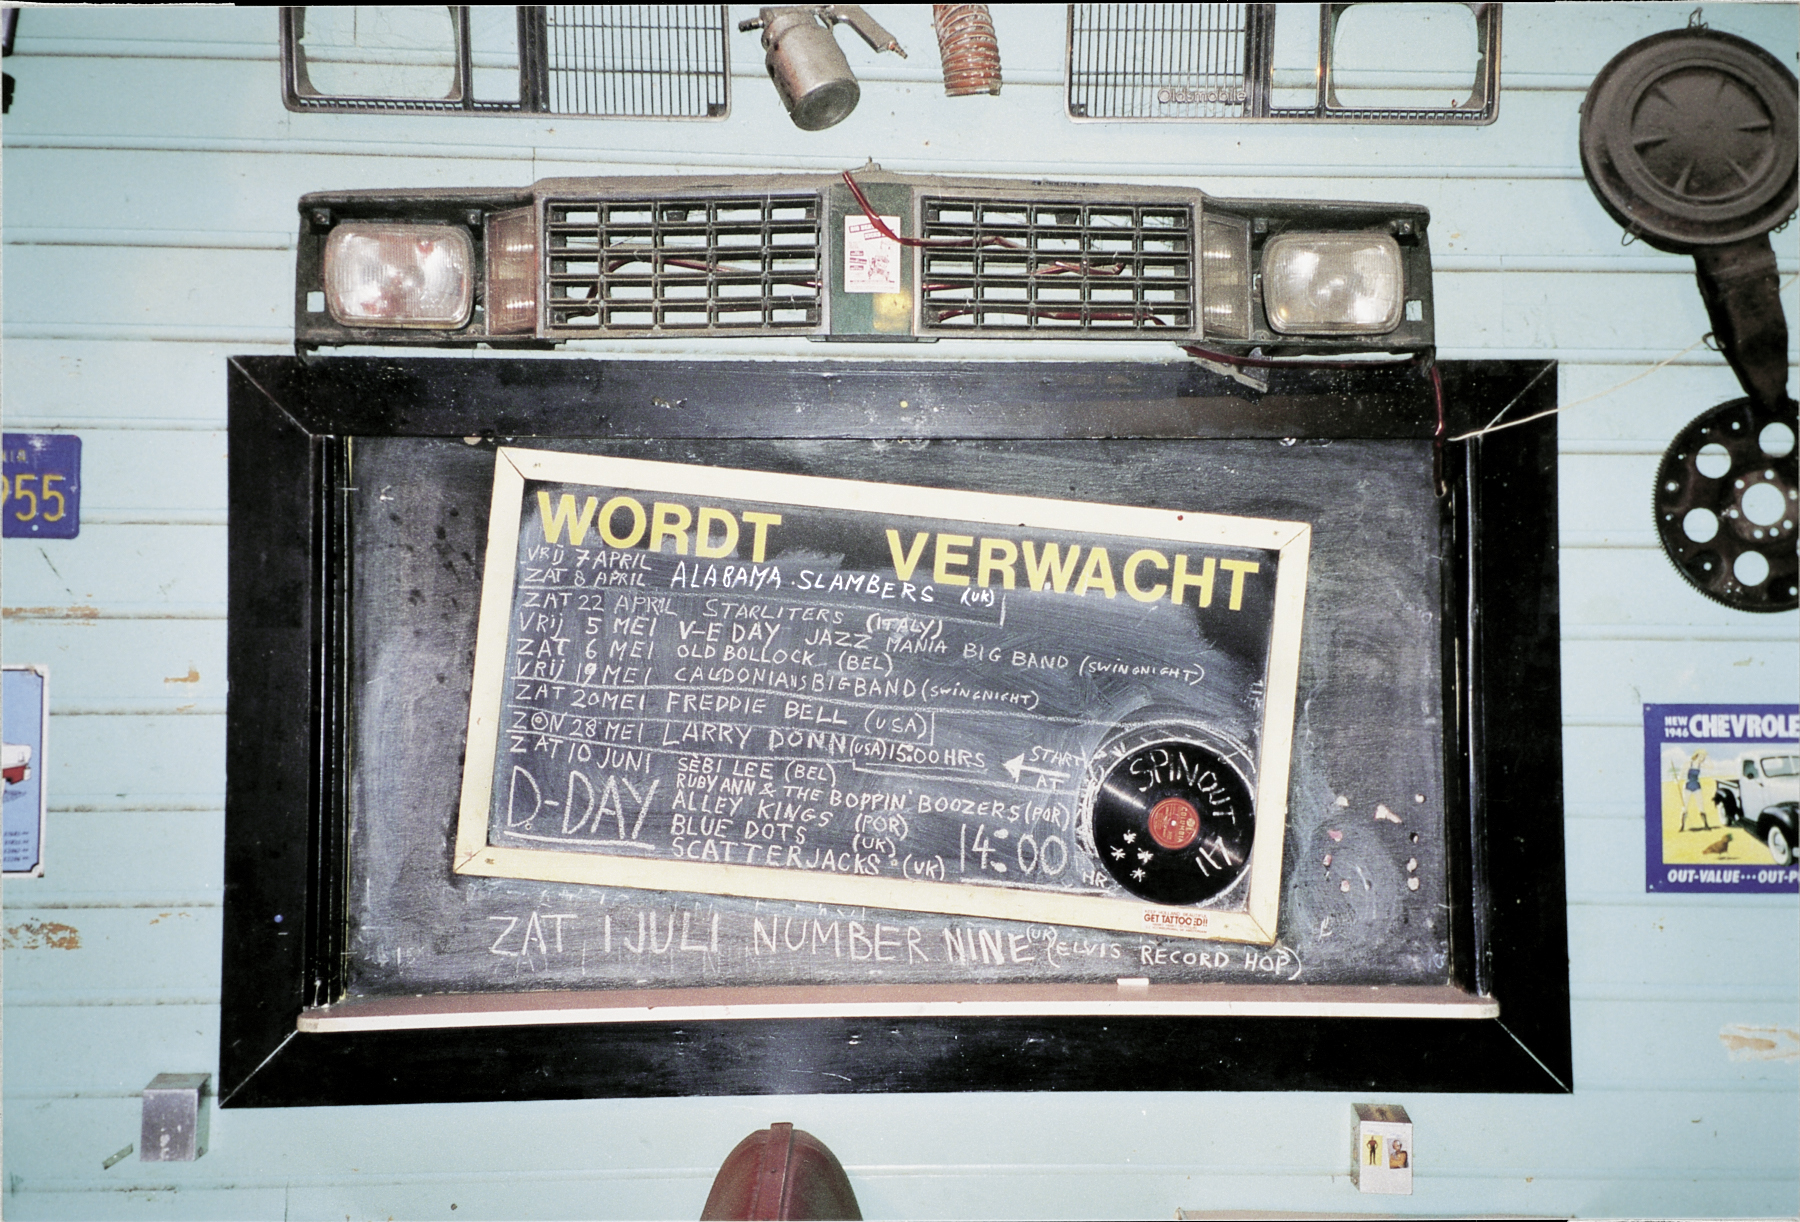 Oldsmobile
955
WORDT VERWACHT
VRIJ 7 APRIL
ZAT 8 APRIL ALABAMA·SLAMBERS (UK)
ZAT 22 APRIL STARLITERS (ITALY)
VRIJ 5 MEI V-E DAY JAZZ MANIA BIG BAND (SWINGNIGHT)
ZAT 6 MEI OLD BOLLOCK (BEL)
VRIJ 19 MEI CALDONIANS BIGBAND (SWINGNIGHT)
ZAT 20 MEI FREDDIE BELL (USA)
ZON 28 MEI LARRY DONN (USA) 15:00 HRS
START
AT
ZAT 10 JUNI SÈBI LEE (BEL)
D-DAY
RUBY ANN & THE BOPPIN' BOOZERS (POR)
ALLEY KINGS (POR)
BLUE DOTS (UK)
SCATTERJACKS (UK)
14:00
HR
SPINOUT
COLUMBIA
GET TATTOOED!!
ZAT 1 JULI NUMBER NINE (UK) (ELVIS RECORD HOP)
NEW
1946 CHEVROLE
OUT-VALUE···OUT-P